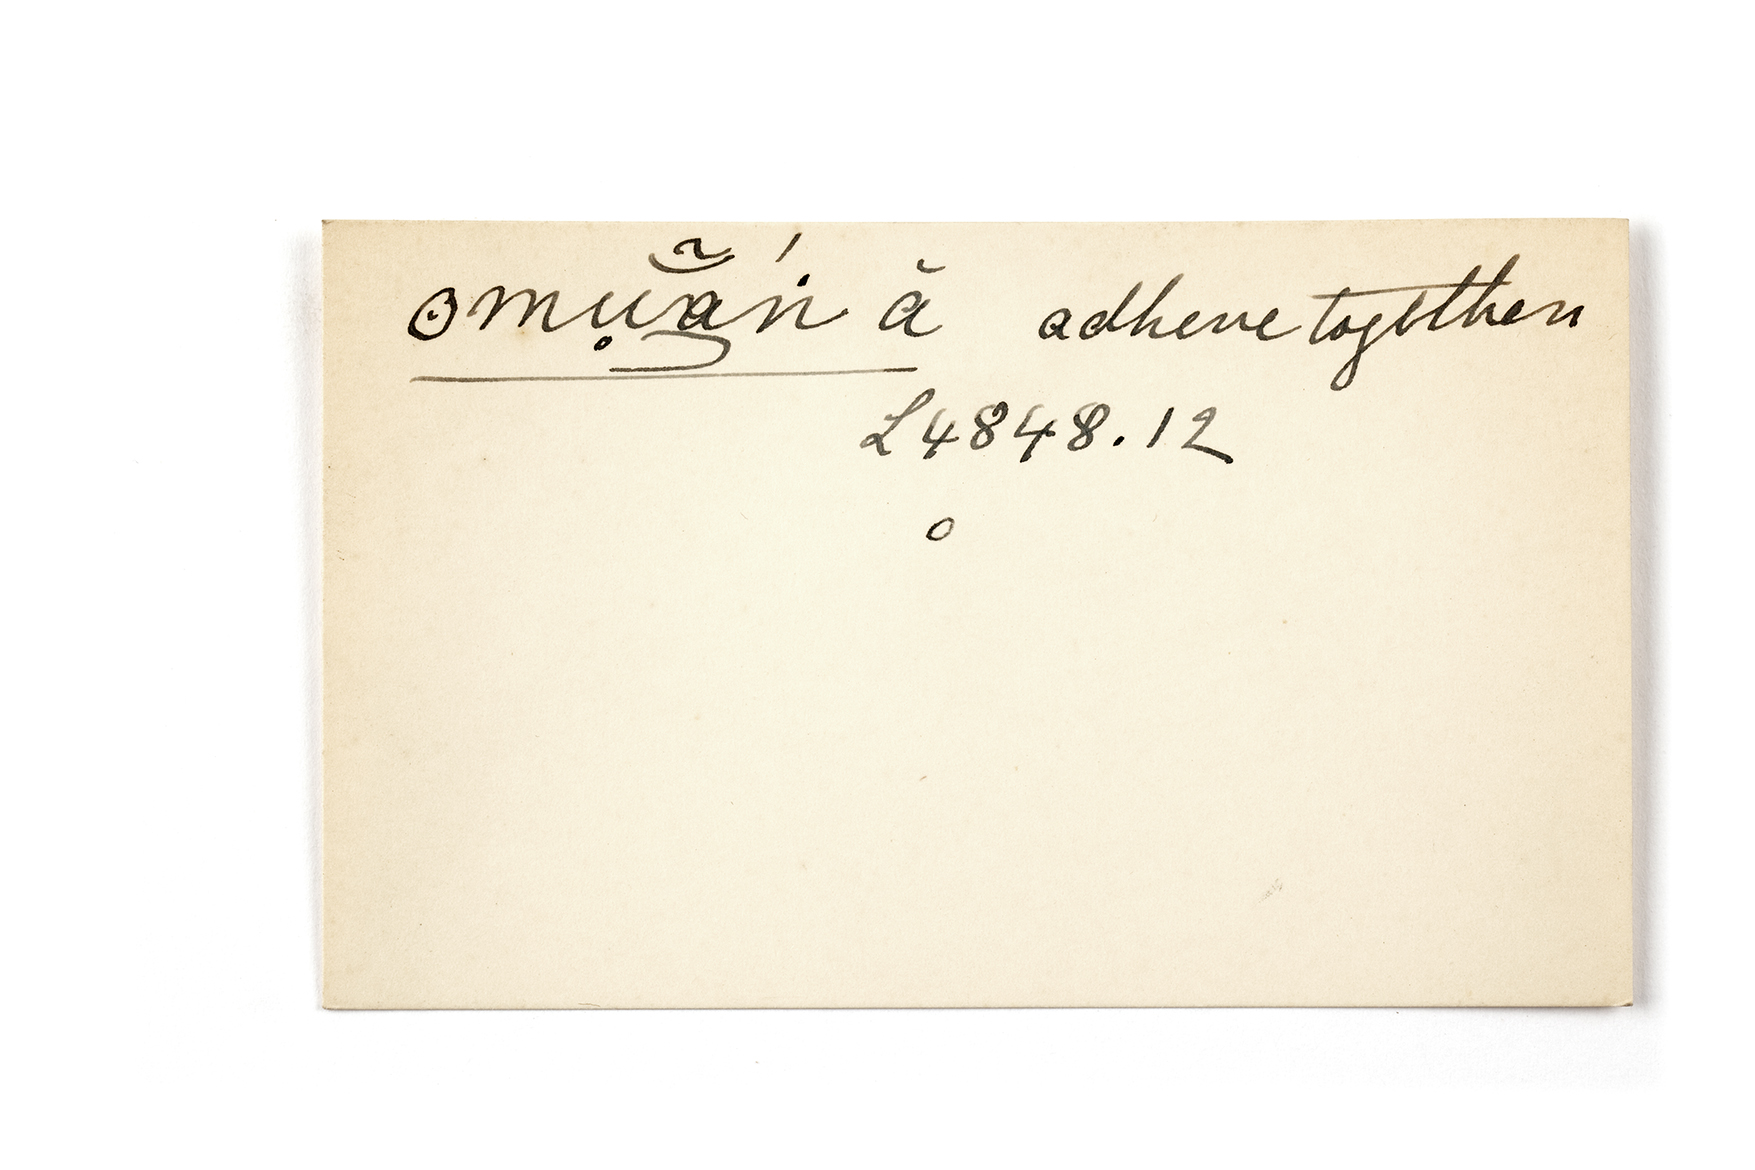 omụw̃ań ă adhere together
L4848.12
o